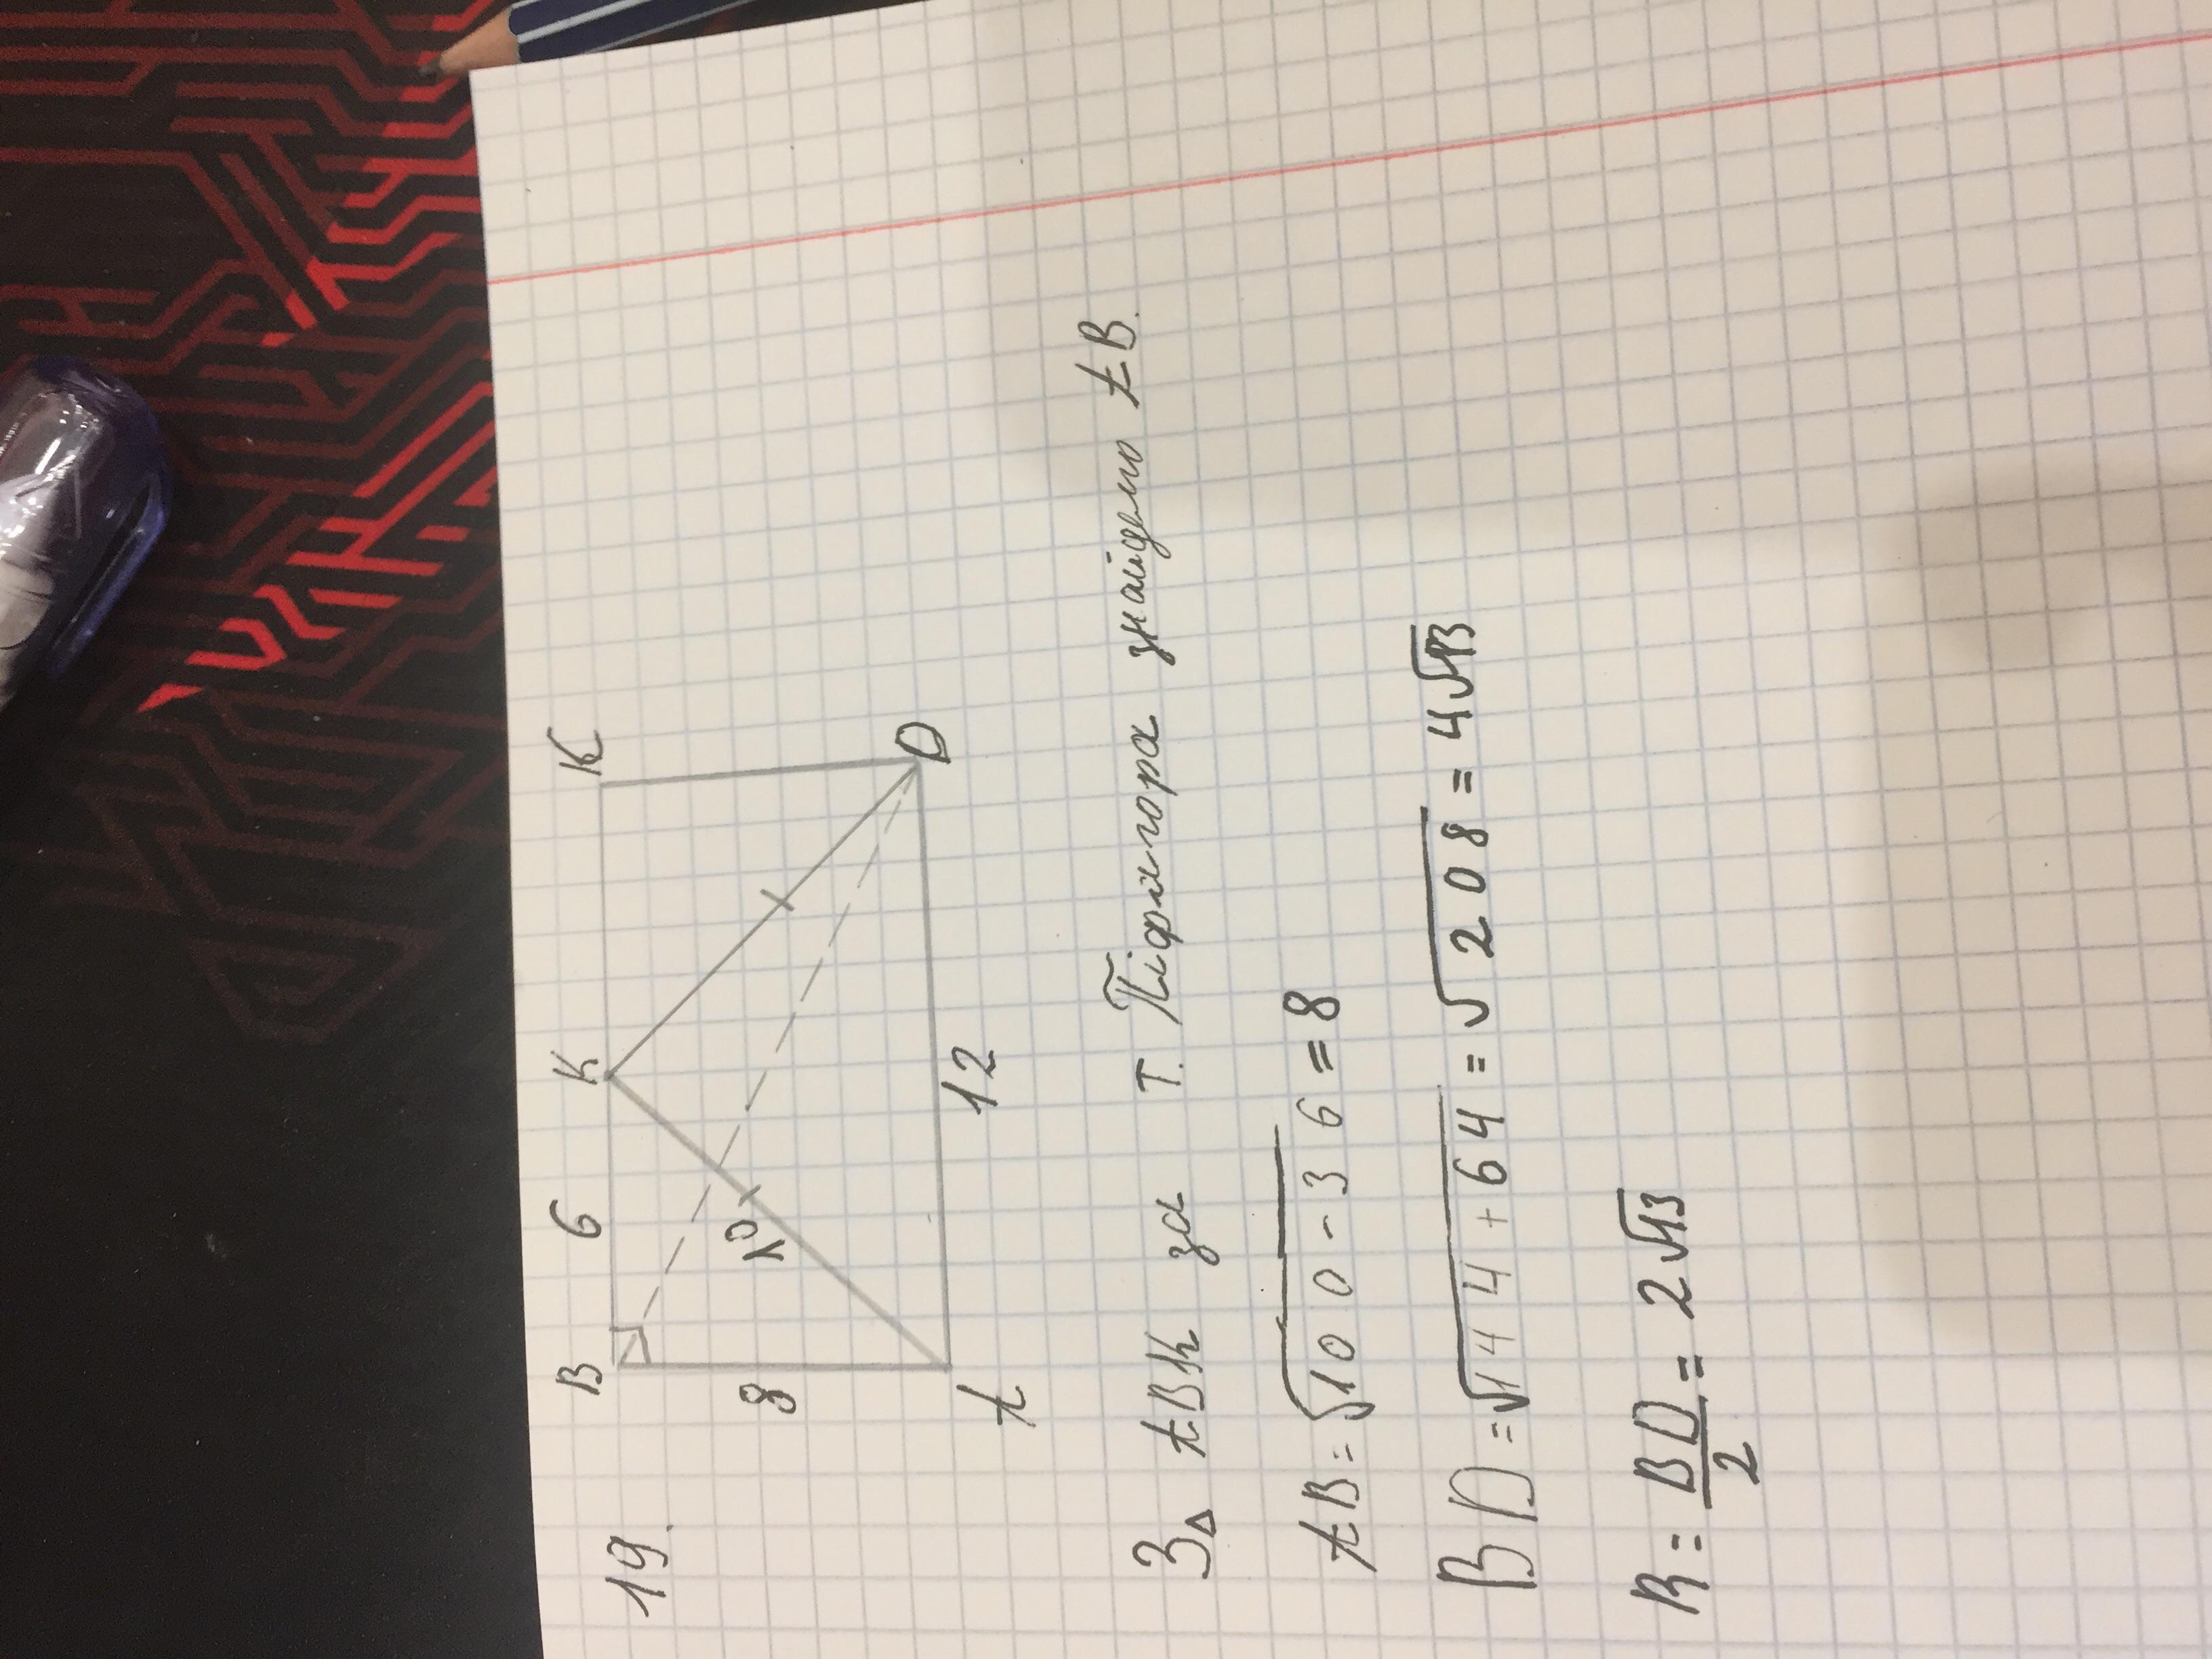 19.
B 6 K К
8 10
A 12 D
З △ ABK за т. Піфагора знайдемо AB.
AB = √100 - 36 = 8
BD = √144 + 64 = √208 = 4√13
R = BD/2 = 2√13